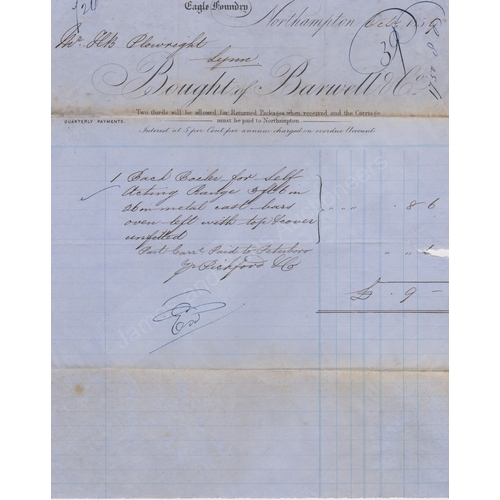 Eagle Foundry
Northampton Oct 1 59
39
Mr. HB Plowright
Lynn
Bought of Barwell & Co.
Two thirds will be allowed for Returned Packages when received and the Carriage
QUARTERLY PAYMENTS. must be paid to Northampton
Interest at 5 per Cent per annum charged on overdue Accounts
1 Back Boiler for Self
Acting Range 3ft 6 in
26in metal cast bars
oven left with top & cover
unfitted 8 6
Part Carr. Paid to Peterboro " " 6
pr Pickford & Co
£ . 9 –